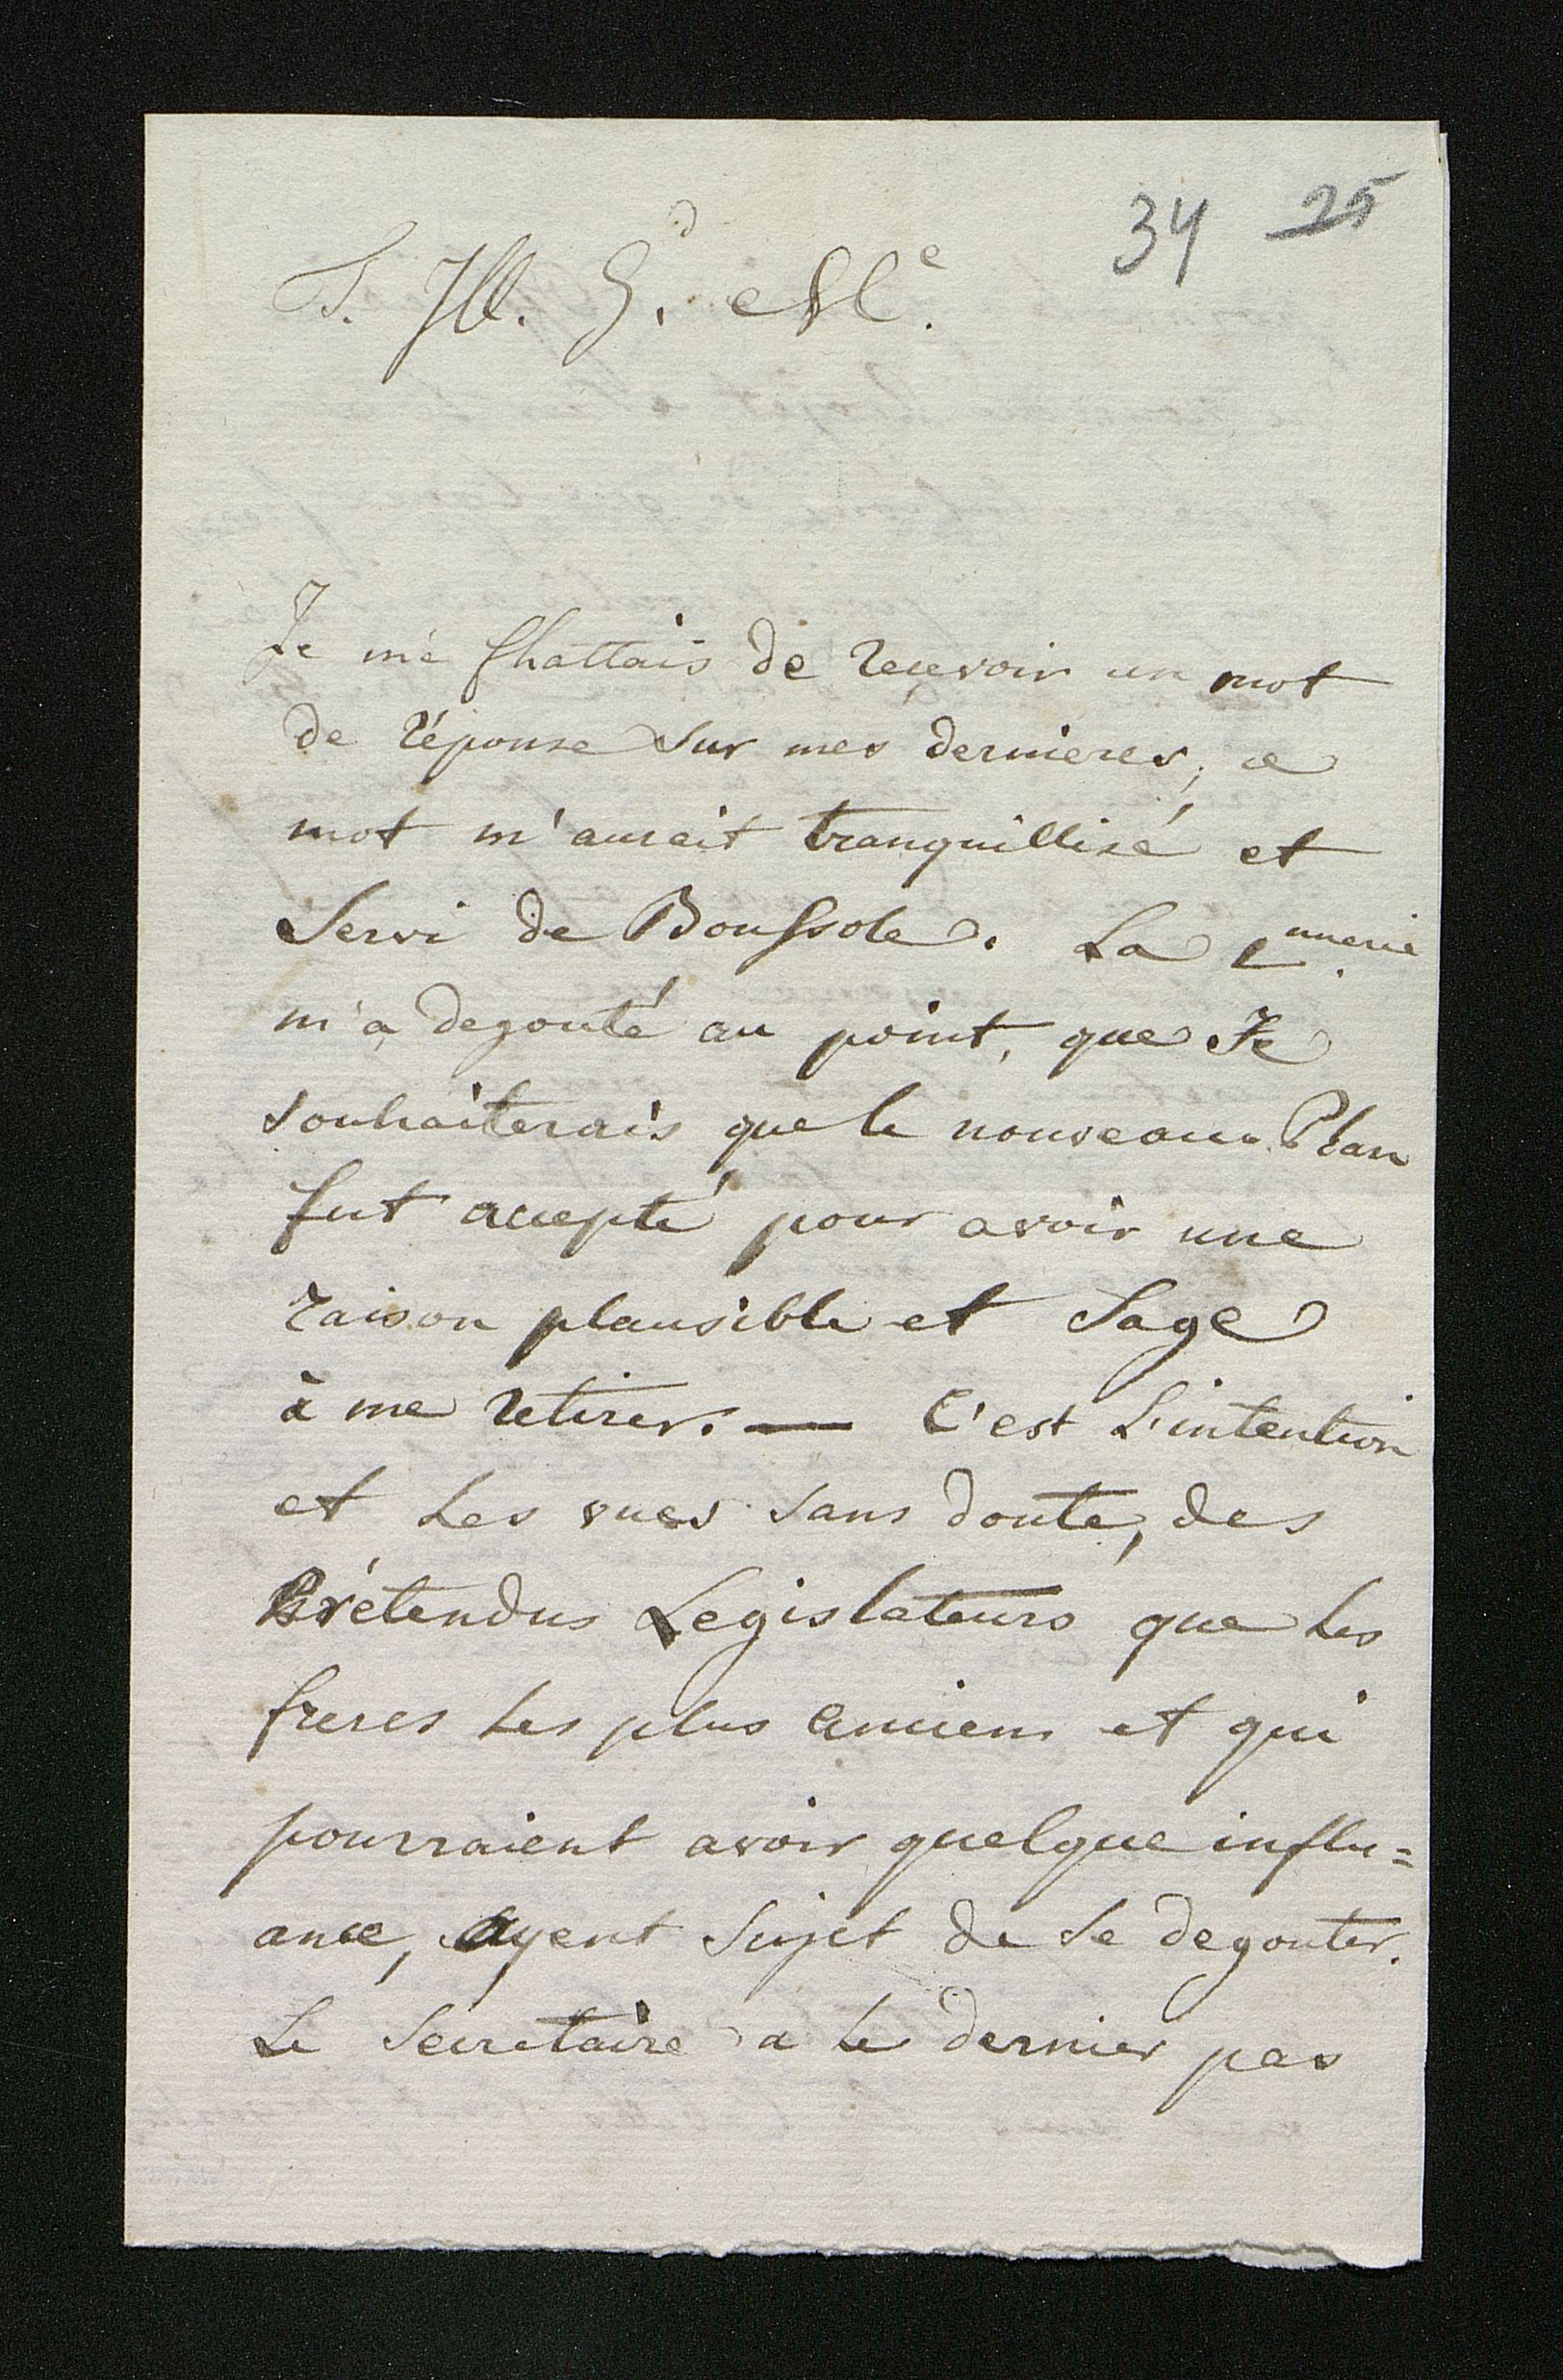 34 25
T. Ill. G.d M.e
Je me flattais de recevoir un mot
de réponse sur mes dernieres, ce
mot m'aurait tranquillisé et
Servi de Boussole. La
m'a degouté au point, que Je
souhaiterais que le nouveau Plan
fut accepté pour avoir une
raison plausible et Sage
à me retirer. — C'est L'intention
et les vues sans doute, des
Prétendus Legislateurs que les
freres les plus anciens et qui
pourraient avoir quelque influ=
ance, ayent Sujet de se degouter.
Le Secretaire a le dernier pas